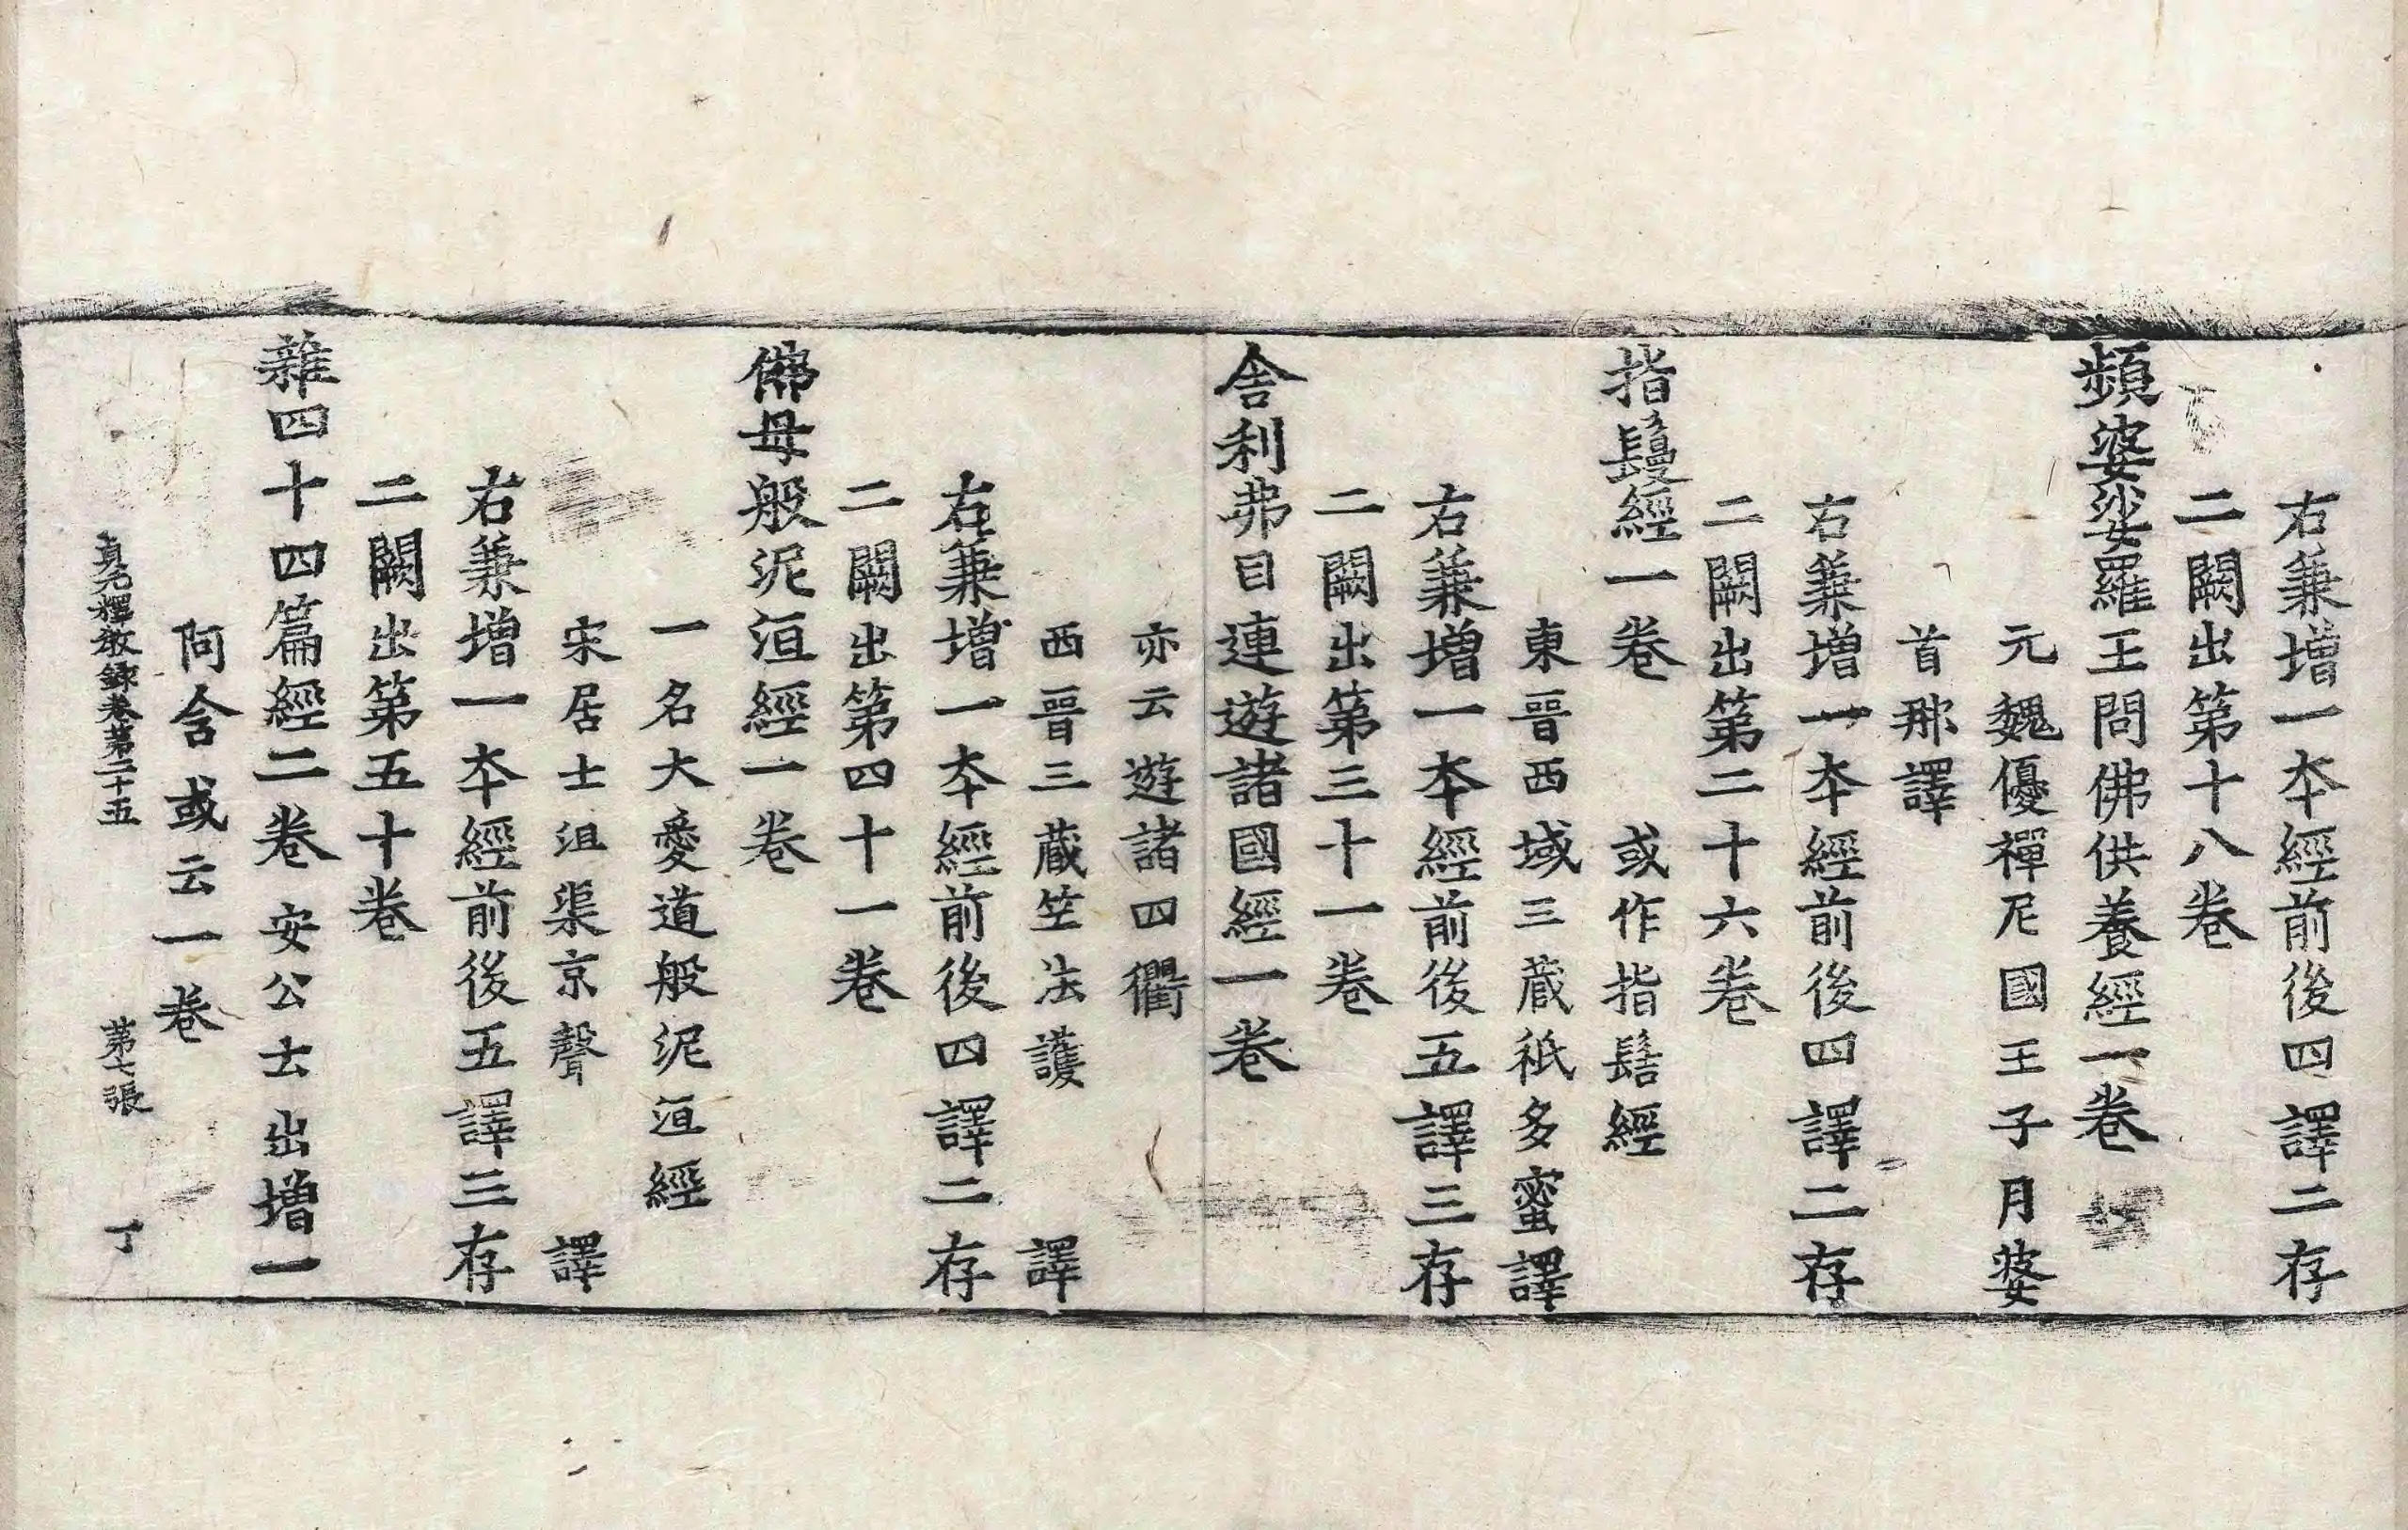 右兼增一本經前後四譯二存
二闕出第十八卷
頻婆娑羅王問佛供養經一卷
元魏優禪尼國王子月婆
首那譯
右兼增一本經前後四譯二存
二闕出第二十六卷
指鬘經一卷　或作指髻經
東晉西域三藏祇多蜜譯
右兼增一本經前後五譯三存
二闕出第三十一卷
舍利弗目連遊諸國經一卷
亦云遊諸四衢
西晉三藏竺法護　譯
右兼增一本經前後四譯二存
二闕出第四十一卷
佛母般泥洹經一卷
一名大愛道般泥洹經
宋居士沮渠京聲　譯
右兼增一本經前後五譯三存
二闕出第五十卷
雜四十四篇經二卷　安公士出增一
阿含或云一卷
貞元釋教錄卷第二十五　第七張　丁